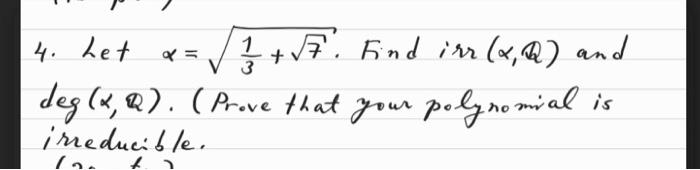 4. Let α = √(1/3 + √7). Find irr (α, Q) and
deg (α, Q). (Prove that your polynomial is
irreducible.